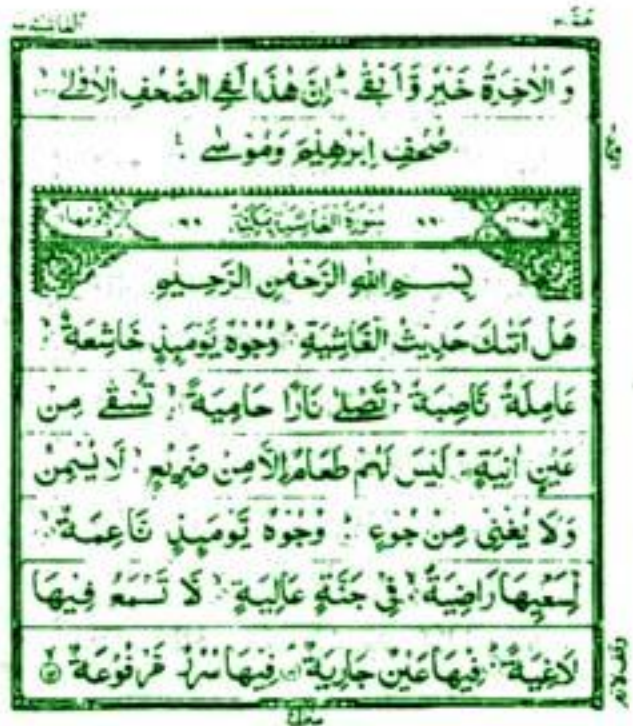 الغاشية ٨٨
عمّ ٣٠
وَالْاٰخِرَةُ خَيْرٌ وَّاَبْقٰى اِنَّ هٰذَا لَفِى الصُّحُفِ الْاُوْلٰى
صُحُفِ اِبْرٰهِيْمَ وَمُوْسٰى
سُوْرَةُ الْغَاشِيَةِ مَكِّيَّةٌ
بِسْمِ اللّٰهِ الرَّحْمٰنِ الرَّحِيْمِ
هَلْ اَتٰىكَ حَدِيْثُ الْغَاشِيَةِ وُجُوْهٌ يَّوْمَىِٕذٍ خَاشِعَةٌ
عَامِلَةٌ نَّاصِبَةٌ تَصْلٰى نَارًا حَامِيَةً تُسْقٰى مِنْ
عَيْنٍ اٰنِيَةٍ لَيْسَ لَهُمْ طَعَامٌ اِلَّا مِنْ ضَرِيْعٍ لَّا يُسْمِنُ
وَلَا يُغْنِىْ مِنْ جُوْعٍ وُجُوْهٌ يَّوْمَىِٕذٍ نَّاعِمَةٌ
لِّسَعْيِهَا رَاضِيَةٌ فِىْ جَنَّةٍ عَالِيَةٍ لَّا تَسْمَعُ فِيْهَا
لَاغِيَةً فِيْهَا عَيْنٌ جَارِيَةٌ فِيْهَا سُرُرٌ مَّرْفُوْعَةٌ